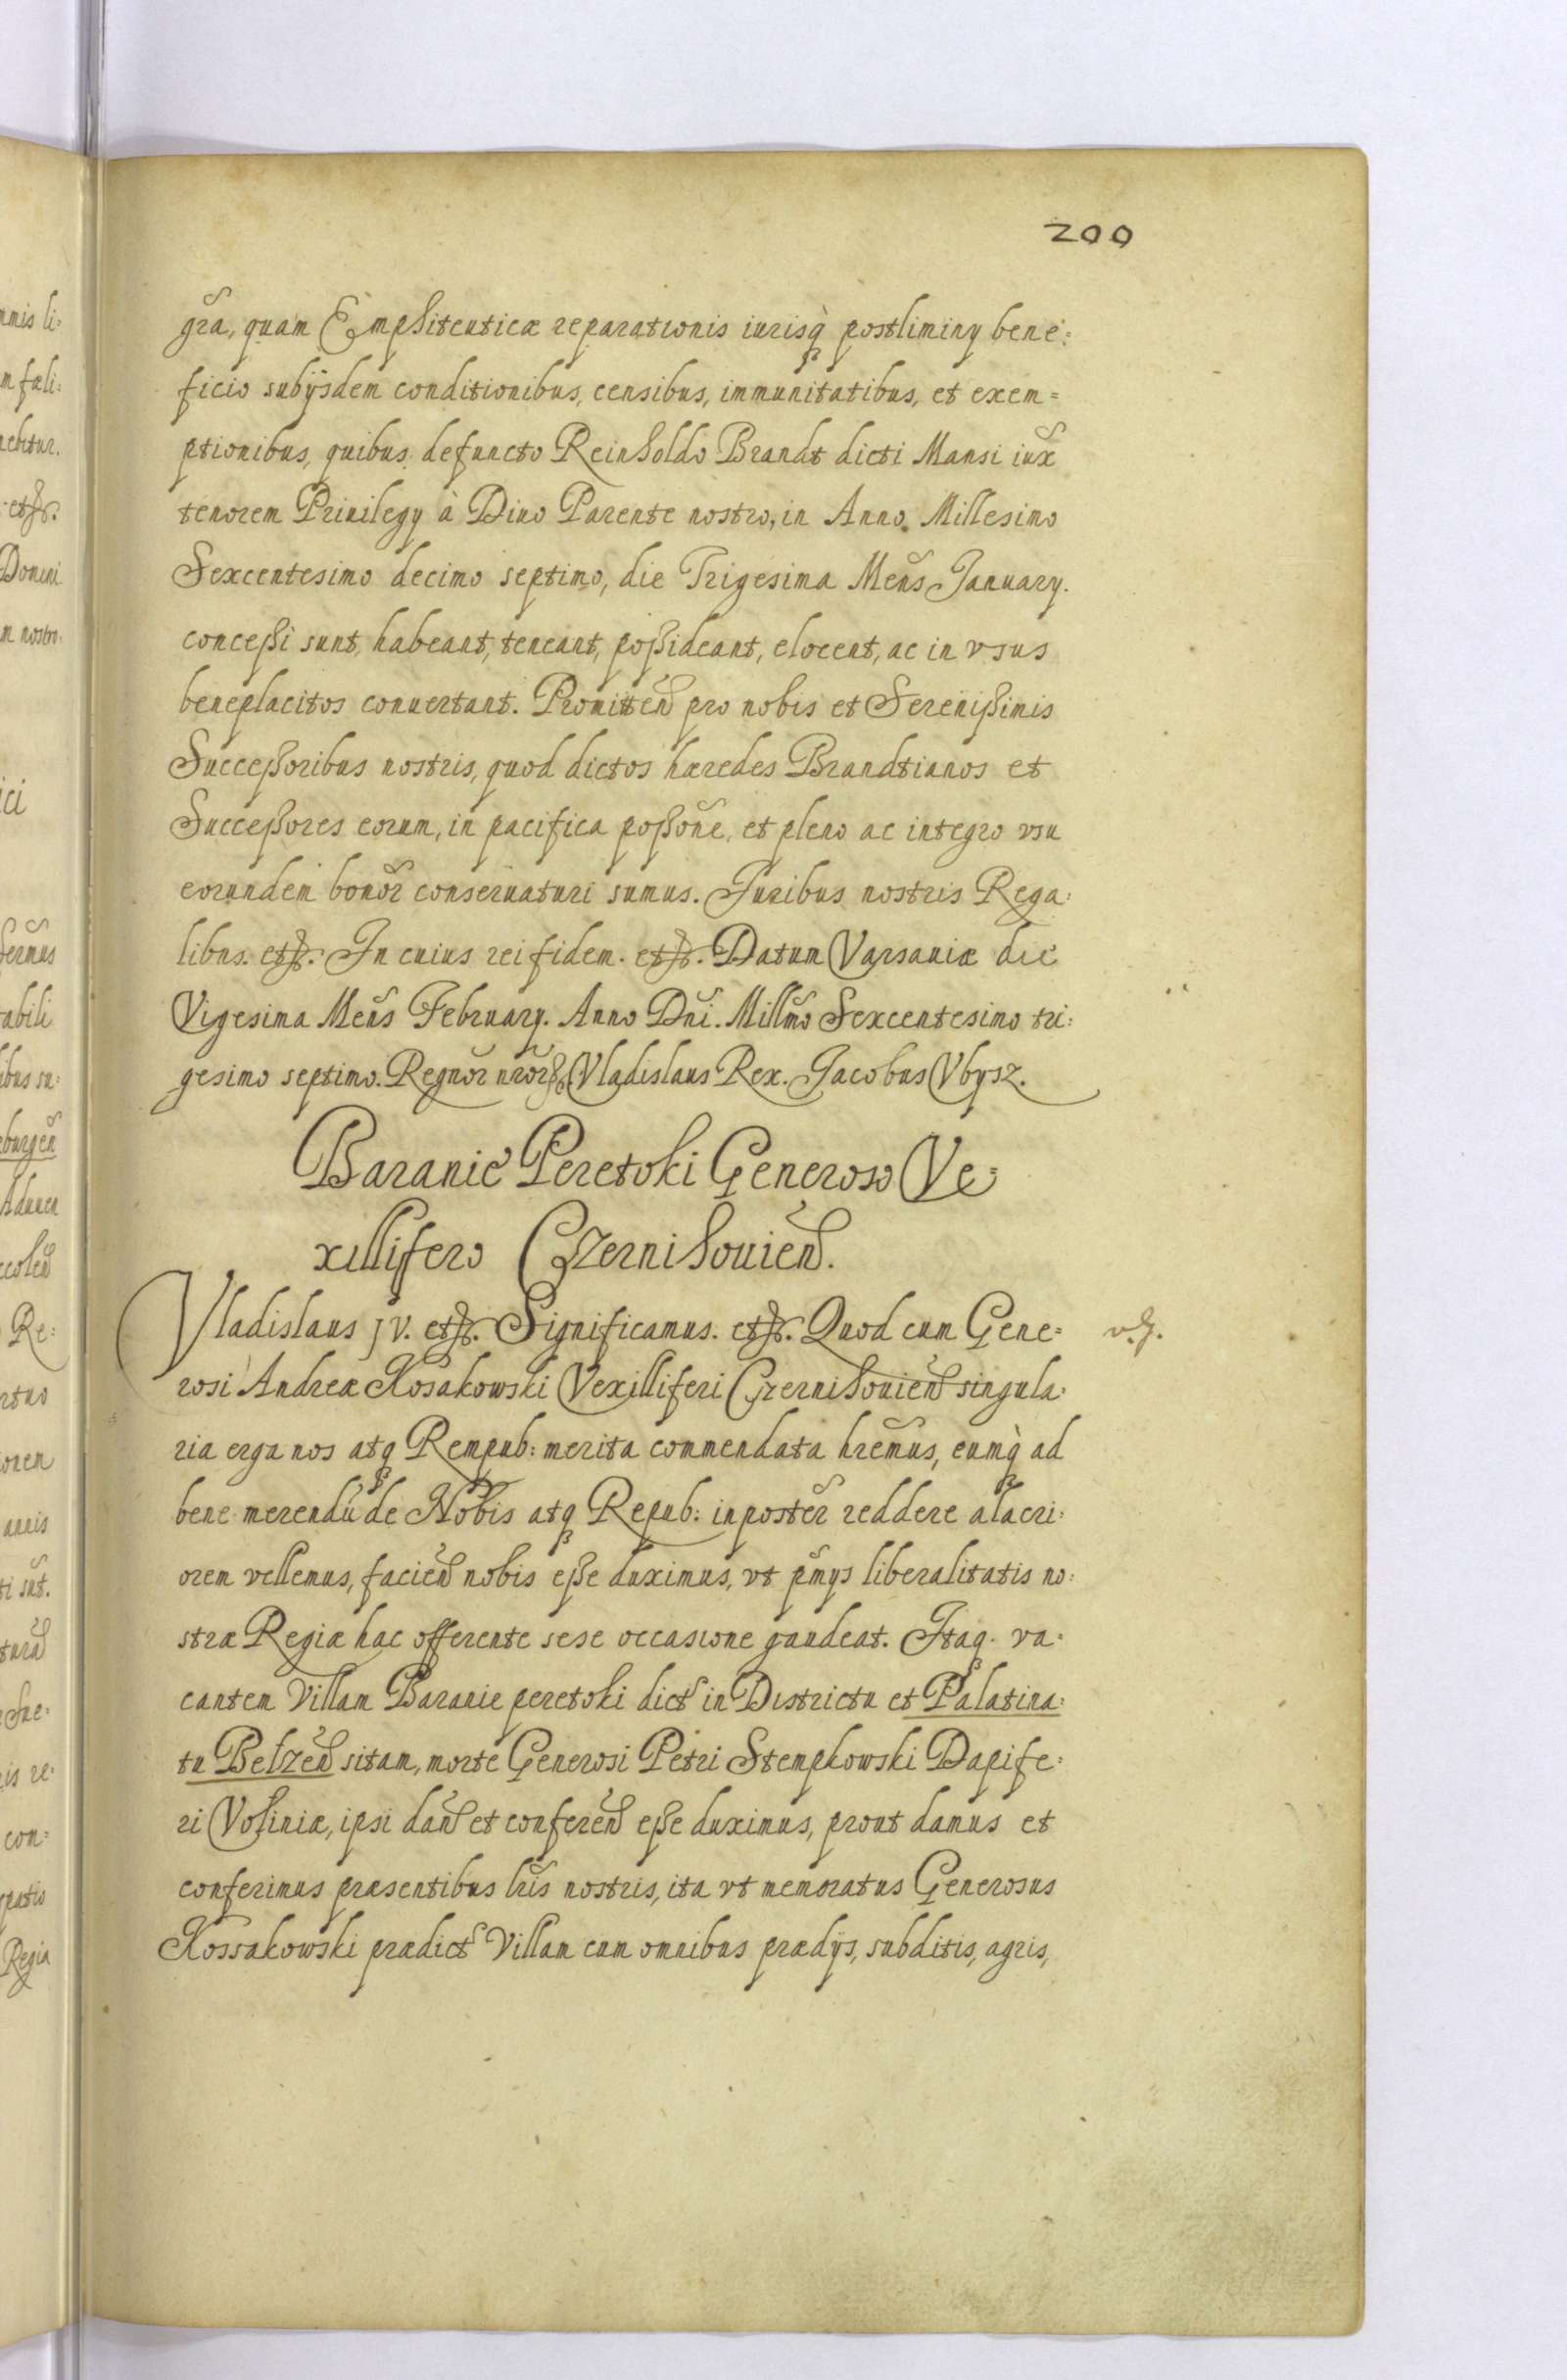 200
gr̃a, quam Emphiteuticæ reparationis iurisq̀ postliminy bene:
ficio subijsdem conditionibus, censibus, immunitatibus, et exem=
ptionibus, quibus defuncto Reinholdo Brandt dicti Mansi iux̃
tenorem Priuilegy à Diuo Parente nostro, in Anno Millesimo
Sexcentesimo decimo septimo, die Trigesima Meñs January.
conceßi sunt, habeant, teneant, poßideant, elocent, ac in vsus
beneplacitos conuertant. Promitteñ pro nobis et Sereníßimis
Succeßoribus nostris, quod dictos hæredes Brandtianos et
Succeßores eorum, in pacifica poßoñe, et pleno ac integro vsu
eorundem bonor̃ conseruaturi sumus. Juribus nostris Rega:
libus. etc. In cuius rei fidem. etc. Datum Varsauiæ die
Vigesima Meñs February. Anno Dñi. Millm̃o Sexcentesimo tri:
gesimo septimo. Regnor̃ nror̃ etc. Vladislaus Rex. Jacobus Vbysz.
Baranie Peretoki Generoso Ve=
xillifero Czernihouieñ.
Vladislaus JV. etc. Significamus. etc. Quod cum Gene=
rosi Andreæ Kosakowski Vexilliferi Czernihouieñ singula:
ria erga nos atq Rempub: merita commendata hrem̃us, eumq̀ ad
bene merendũ de Nobis atq Repub: inposter̃ reddere alacri:
orem vellemus, facieñ nobis eße duximus, vt pm̃ys liberalitatis no:
stræ Regiæ hac offerente sese occasione gaudeat. Itaq va:
cantem Villam Baranie peretoki dict in Districtu et Palatina:
tu Belzeñ sitam, morte Generosi Petri Stempkowski Dapife:
ri Voliniæ, ipsi dañ et confereñ eße duximus, prout damus et
conferimus præsentibus lr̃is nostris, ita vt memoratus Generosus
Kossakowski prædict Villam cum omnibus prædijs, subditis, agris,